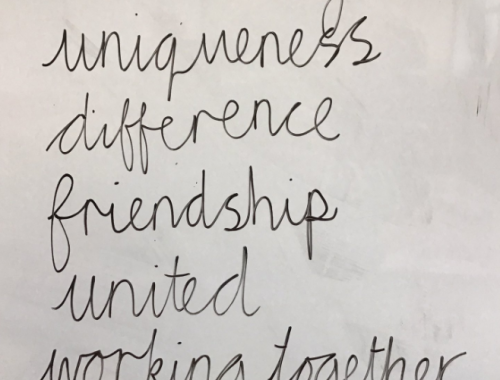 uniqueness
difference
friendship
united
working together